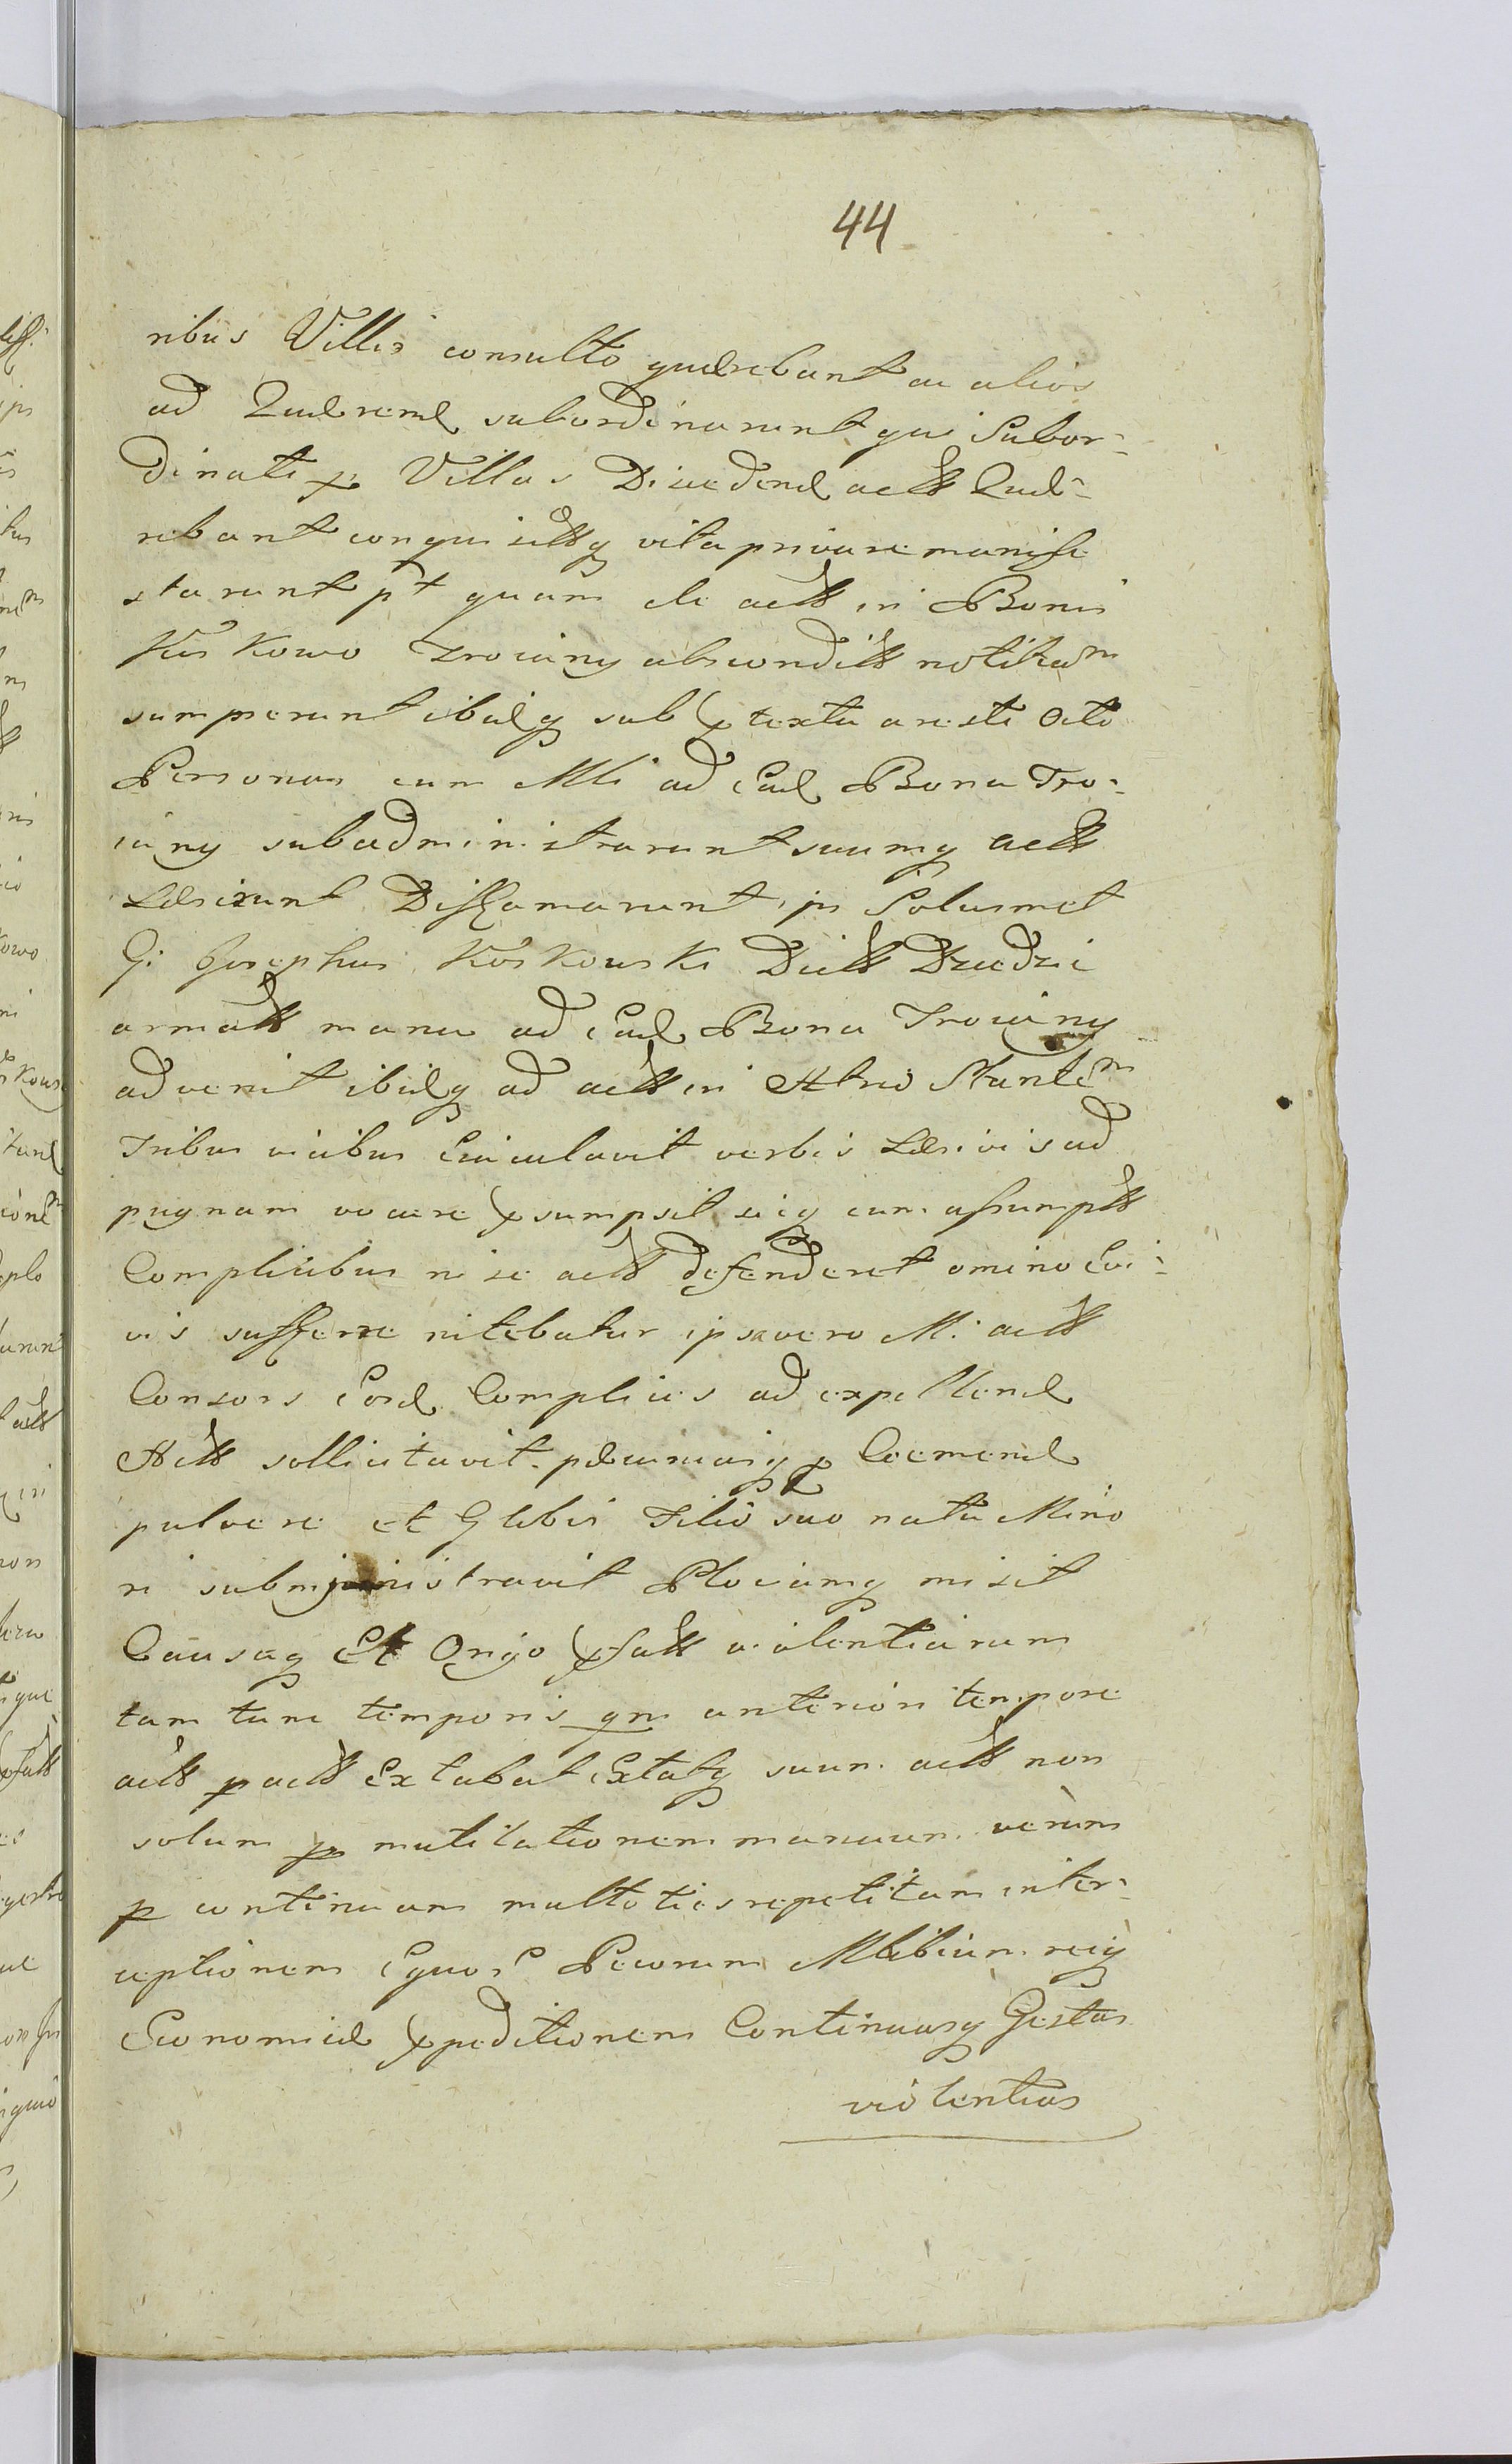 44
ribus Villis consulto quærebant ac alios
ad Quærend subordinarunt qui Subor-
dinati p Villas Discedend actt Quæ-
rebant conquisittq vita privare manife
starunt pt quam de actt in Bonis
Koskowo Troiany abscondittt notitiam
sumpserunt ibidq sub ptextu aresti octo
Personas cum Mli ad Ead Bona Tro-
iany subadministrarunt suumq actt
Læsirunt Diffamarunt ips Solusmet
G: Josephus Koskowski Dictt Dziedzic
armatt manu ad Ead Bona Troiany
advenit ibidq ad actt in Atrio Stantem
Tribus vicibus Eiaculavit verbis Læsivis ad
pugnam vocare psumpsit sicq cum assumptt
Complicibus ni se actt defenderet omino Cui-
vis sufferre nitebatur ipsa vero M: actt
Consors Eord Complices ad expellend
Actt sollicitavit. pecuniasq p Coemend
pulvere et Glebis Filio suo natu Mino
ri subministravit Plociamq misit
Causaq Et Origo pfatt violentiarum
tam tunc temporis qm anteriori tempore
actt p actt Extabat Extatq suum actt non
solum p mutilationem manuum verum
p continuam multoties repetitam inter-
ceptionem Equor Pecorum Mlibium reiq
Economicæ xpeditionem Continuasq Gestas
violentias